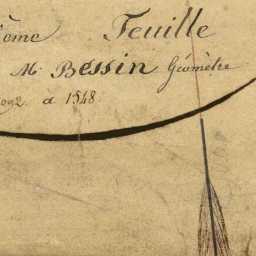 ème Feuille
M. Bessin Géomètre
a 1548